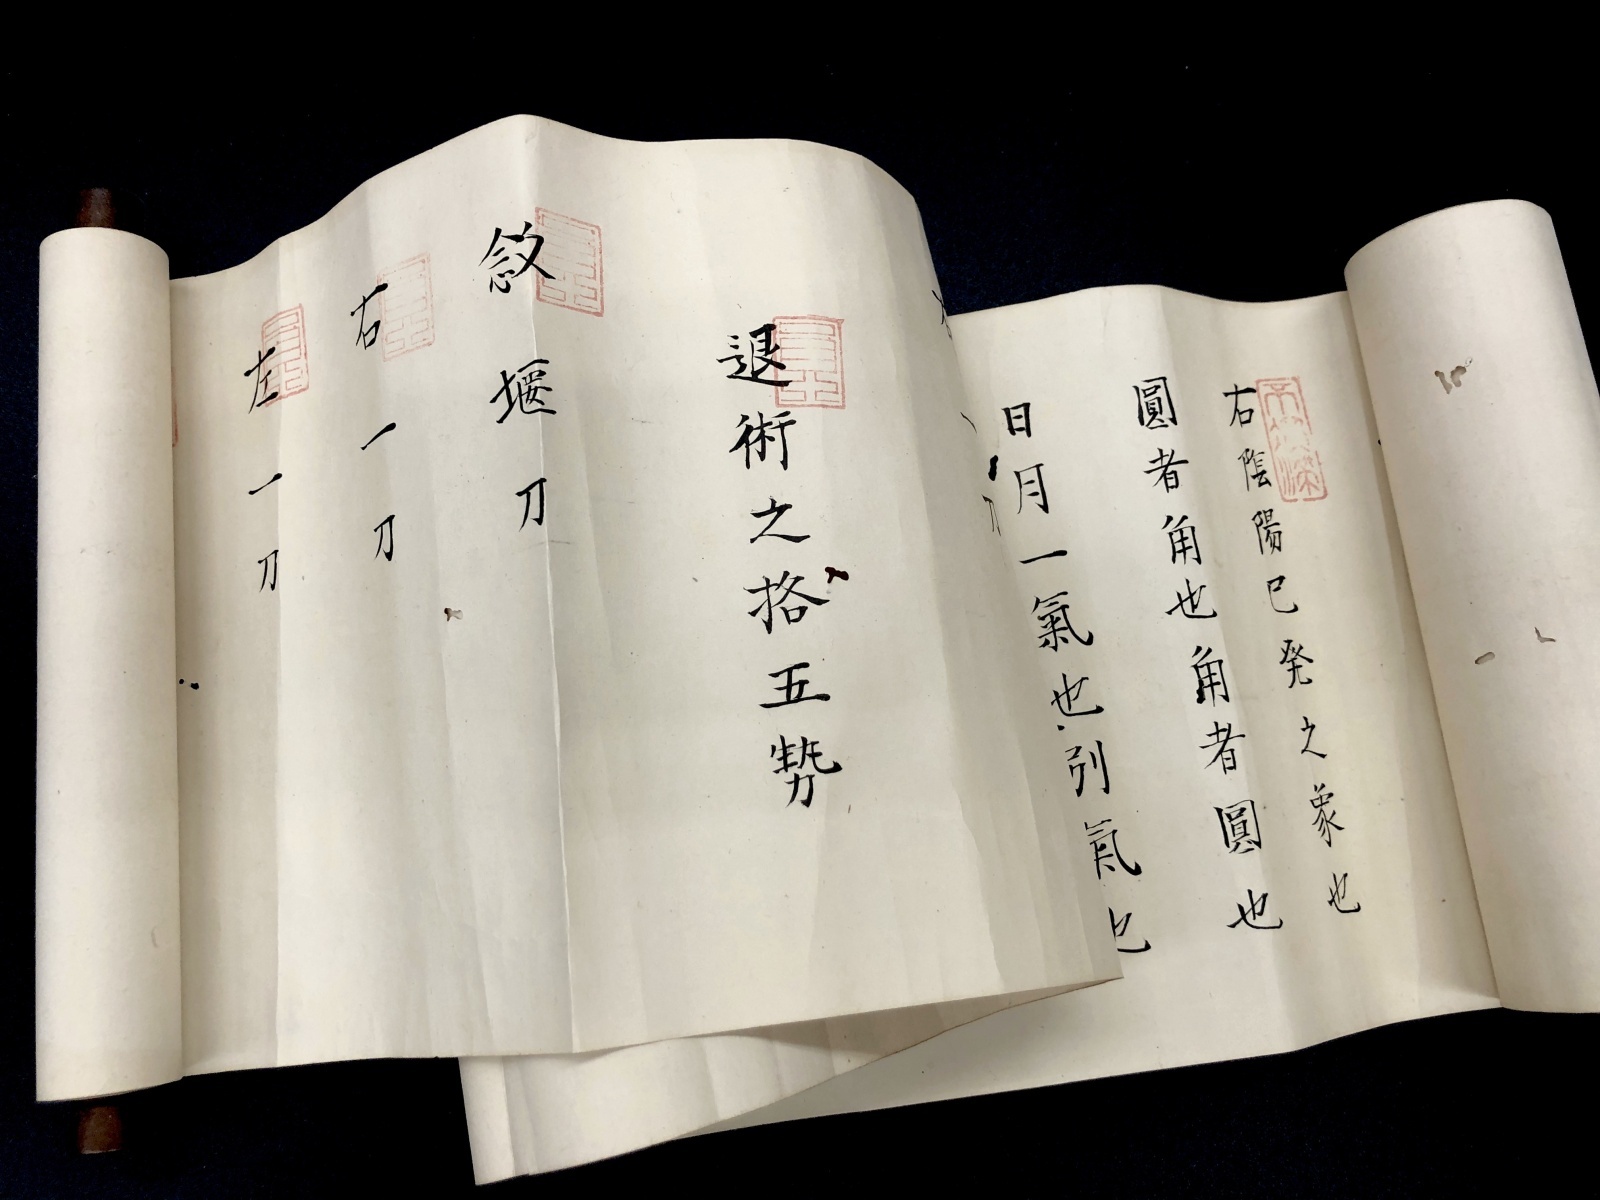 右陰陽已発之象也
圓者角也角者圓也
日月一氣也別氣也
退術之格五勢
斂堰刀
右一刀
左一刀